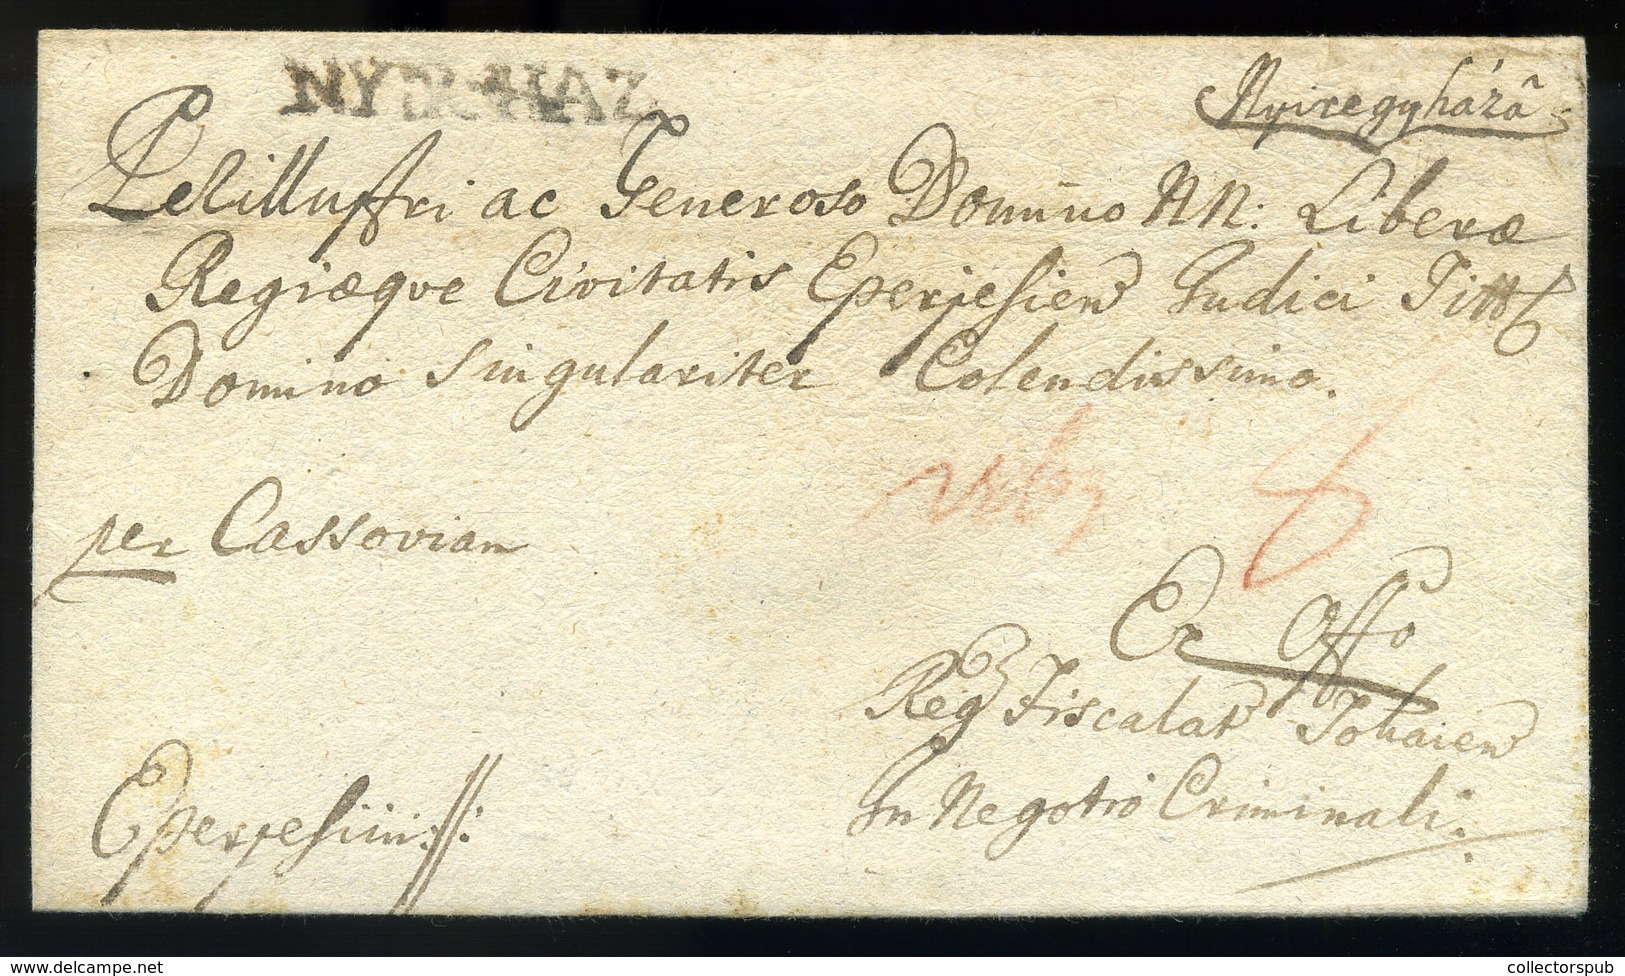 NYIR-HAZ
Nyiregyházâ
Perillustri ac Generoso Domino NN: Liberæ
Regiæqve Civitatis Eperjesien Judici Titt
Domino Singulariter Colendissimo.
per Cassoviam
6
Ex Offo
Reg Fiscalat Tokaien
In Negotio Criminali.
Eperjesini
collectorspub.com